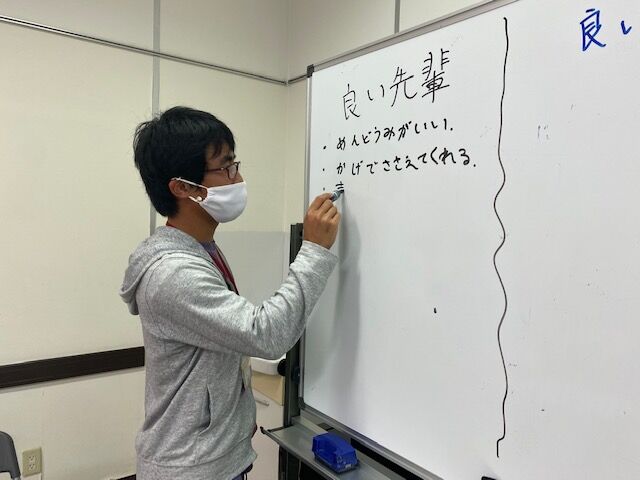 良い先輩
・めんどうみがいい.
・かげでささえてくれる.
・
良い